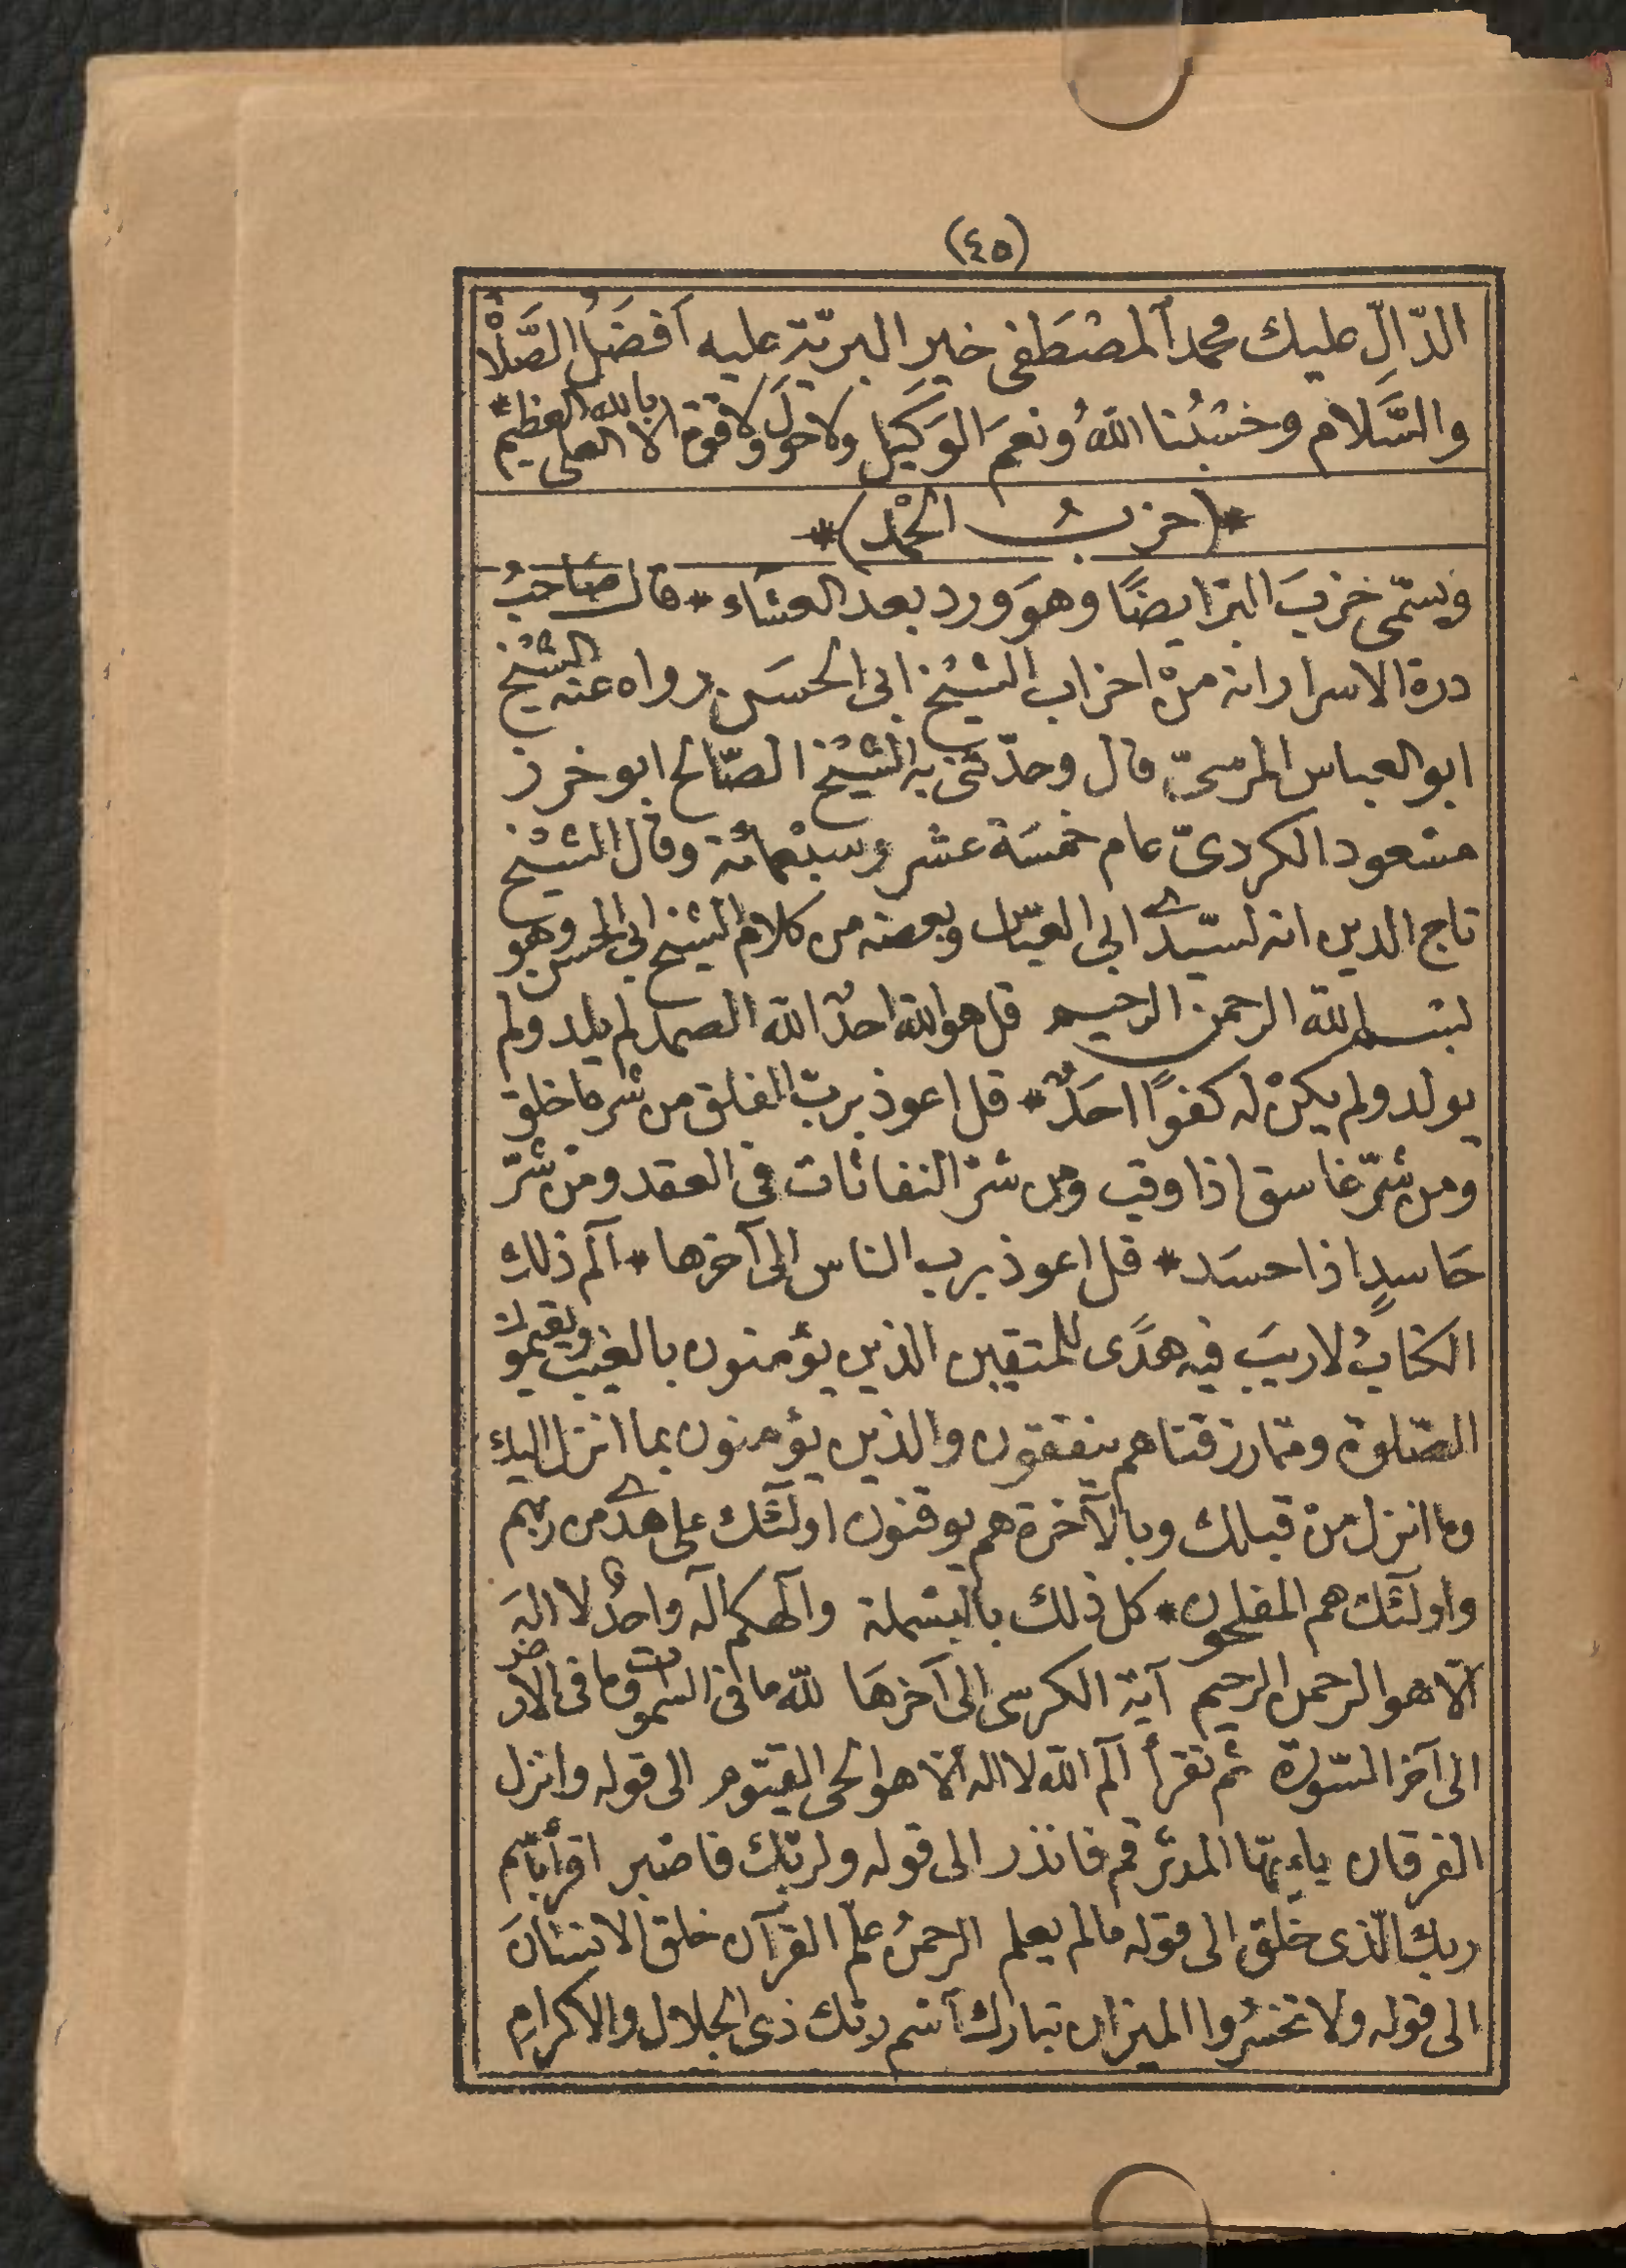 (٤٥)
الدّالِّ عليك محمد المصْطَفى خير البريّة عليه أفضَلُ الصَّلاة
والسَّلام وحسْبُنا اللهُ ونعمَ الوَكيل ولاحول ولاقوة الا بالله العلى العظيم *
*(حزبُ الحمْد)*
ويسمّى حزبَ البرّ ايضًا وهوَ ورد بعد العشاء * قال صَاحبُ
درة الاسرار انه منْ احزاب الشيْخ ابى الحسَن رواه عنه الشيْخ
ابو العباس المرسىّ قال وحدّثنى به الشيْخ الصّالح ابو خرز
مسْعود الكردىّ عام خمسَة عشر وسبْعمائة وقال الشيْخ
تاج الدين انه لسيّدى ابى العبّاس وبعضه من كلام الشيخ ابى الحسن وهو
بسْم الله الرحمن الرحيم قل هوالله احدٌ الله الصمد لم يلد ولم
يولد ولم يكنْ له كفوًا احَدٌ * قل اعوذ بربّ الفلق من شر ما خلق
ومن شرّ غاسق اذا وقب ومن شرّ النفاثات فى العقد ومن شرّ
حَاسدٍ اذا حسَد * قل اعوذ برب الناس الى آخرها * آلم ذلك
الكتابُ لاريبَ فيه هدًى للمتقين الذين يؤمنون بالغيب ويقيمون
الصّلوة وممّا رزقناهم ينفقون والذين يؤمنون بما انزل اليك
وما انزل منْ قبلك وبالآخرة هم يوقنون اولئك على هدى من ربهم
واولئك هم المفلحون * كل ذلك بالبسْملة وآلهكم آله واحدٌ لا الهَ
الّا هو الرحمن الرحيم آية الكرسى الى آخرهَا للّه ما فى السموات وما فى الارض
الى آخر السّورة ثم تقرأ آلم الله لا اله الّا هو الحى القيّوم الى قوله وانزل
الفرقان ياءيهّا المدثر قم فانذر الى قوله ولربّك فاصْبر اقرأ باسْم
ربك الّذى خلَق الى قوله مالم يعلم الرحمنُ علّم القرآن خلق الانسَانَ
الى قوله ولا تخسُروا الميزان تبارك اسْم ربّك ذى الجلال والاكرام